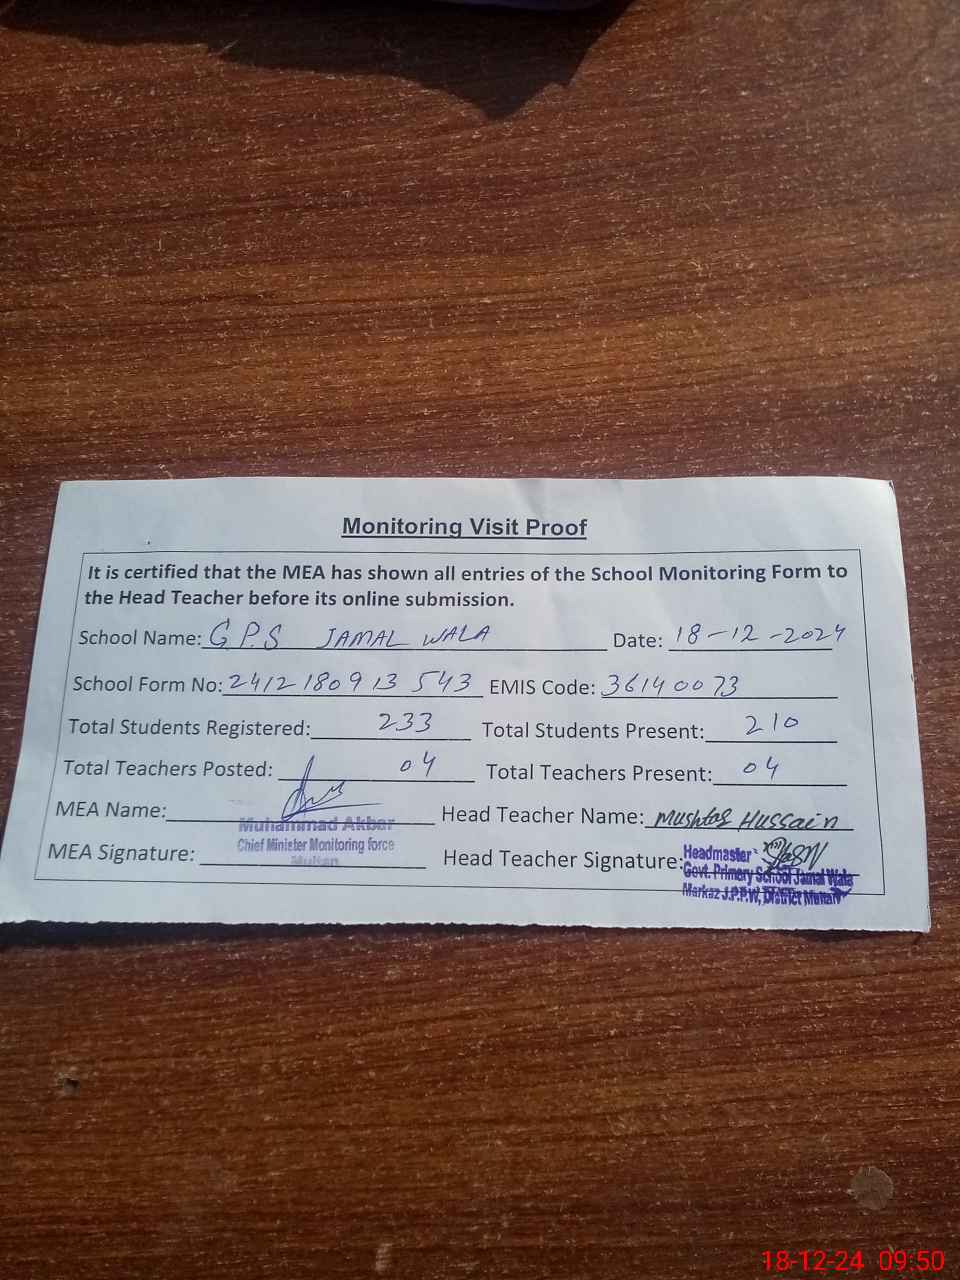 Monitoring Visit Proof
It is certified that the MEA has shown all entries of the School Monitoring Form to
the Head Teacher before its online submission.
School Name: G P.S JAMAL WALA Date: 18-12-2024
School Form No: 2412180913543 EMIS Code: 36140073
Total Students Registered: 233 Total Students Present: 210
Total Teachers Posted: 04 Total Teachers Present: 04
MEA Name: Head Teacher Name: Mushtaq Hussain
Muhammad Akbar
Chief Minister Monitoring force
Multan
MEA Signature: Head Teacher Signature:
Headmaster
Govt. Primery School Jamal Wala
Markaz J.P.P.W, District Multan
18-12-24 09:50